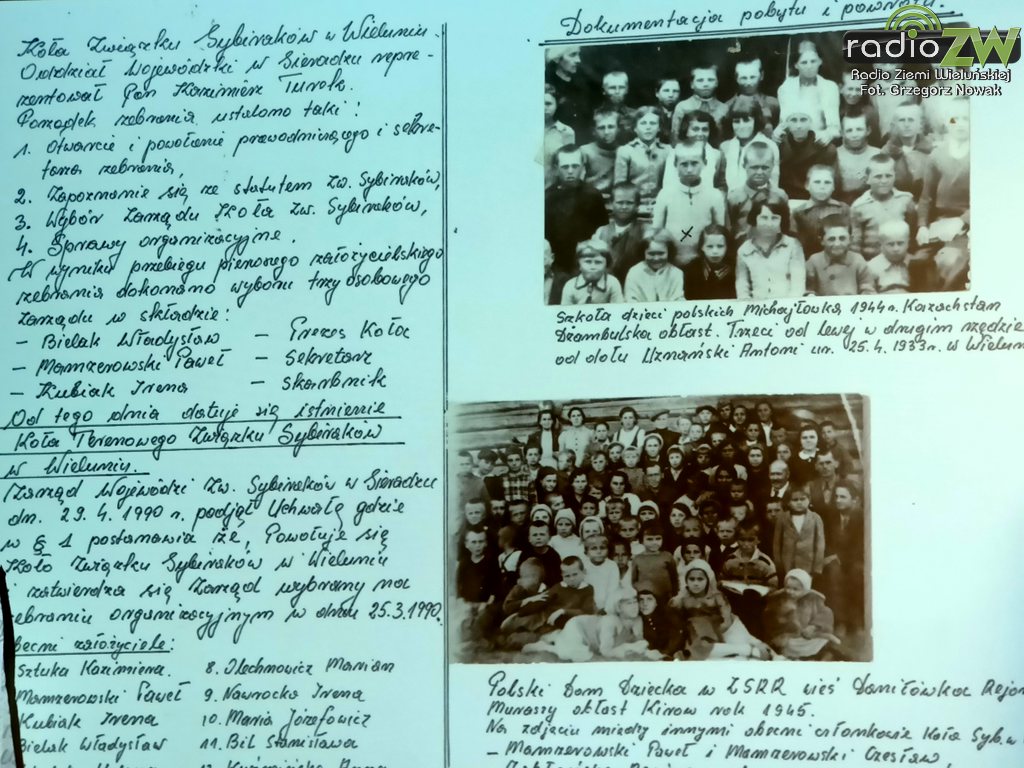 Koła Związku Sybiraków w Wieluniu.
Oddział Wojewódzki w Sieradzu repre-
zentował Pan Kazimierz Turek.
Porządek zebrania ustalono taki:
1. Otwarcie i powołanie prowadzącego i sekre-
tarza zebrania,
2. Zapoznanie się ze statutem Zw. Sybiraków,
3. Wybór Zarządu Koła Zw. Sybiraków,
4. Sprawy organizacyjne.
W wyniku przebiegu pierwszego założycielskiego
zebrania dokonano wyboru trzy osobowego
zarządu w składzie:
- Bielak Władysław - Prezes Koła
- Mamzerowski Paweł - Sekretarz
- Kubiak Irena - Skarbnik
Od tego dnia datuje się istnienie
Koła Terenowego Związku Sybiraków
w Wieluniu.
Zarząd Wojewódzki Zw. Sybiraków w Sieradzu
dn. 29.4.1990 r. podjął Uchwałę gdzie
w § 1 postanawia że, Powołuje się
Koło Związku Sybiraków w Wieluniu
i zatwierdza się Zarząd wybrany na
zebraniu organizacyjnym w dniu 25.3.1990.
Obecni założyciele:
Sztuka Kazimiera.
Mamzerowski Paweł
Kubiak Irena
Bielak Władysław
8. Olechnowicz Marian
9. Nawrocka Irena
10. Maria Józefowicz
11. Bil Stanisława
Dokumentacja pobytu i powrotu.
radioZW
Radio Ziemi Wieluńskiej
Fot. Grzegorz Nowak
x
Szkoła dzieci polskich Michajłowka 1944 r. Kazachstan
Dżambulska obłast. Trzeci od lewej w drugim rzędzie
od dołu Uznański Antoni ur. 25.4.1933r. w Wielun
Polski Dom Dziecka w ZSRR wieś Daniłówka Rejon
Muraszy obłast Kirow rok 1945.
Na zdjęciu między innymi obecni członkowie Koła Syb. w
- Mamzerowski Paweł i Mamzerowski Czesław,